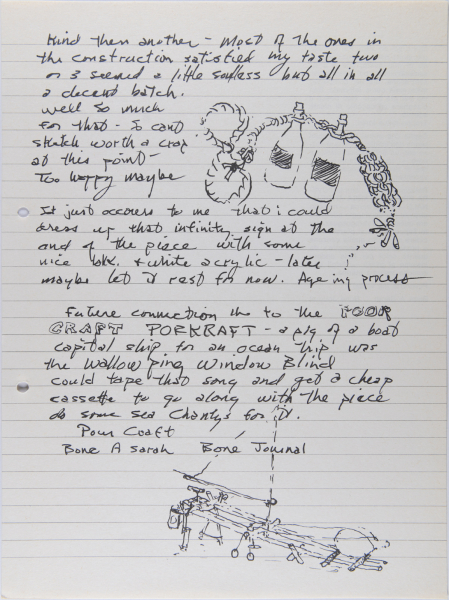 Kind then another - Most of the ones in
the construction satisfied my taste two
or 3 seemed a little souless but all in all
a decent batch.
well so much
for that - I cant
sketch worth a crap
at this point -
Too happy maybe
It just occurs to me that i could
dress up that infinity sign at the
end of the piece with some
nice blk. & white acrylic - later
maybe let it rest for now. Ageing process
Future connection to the POOR
CRAFT PORKRAFT - a pig of a boat
capital ship for an ocean trip was
the Walloping Window Blind
could tape that song and get a cheap
cassette to go along with the piece
do some sea chantys for it.
Pour Craft
Bone A Sarah Bone Journal